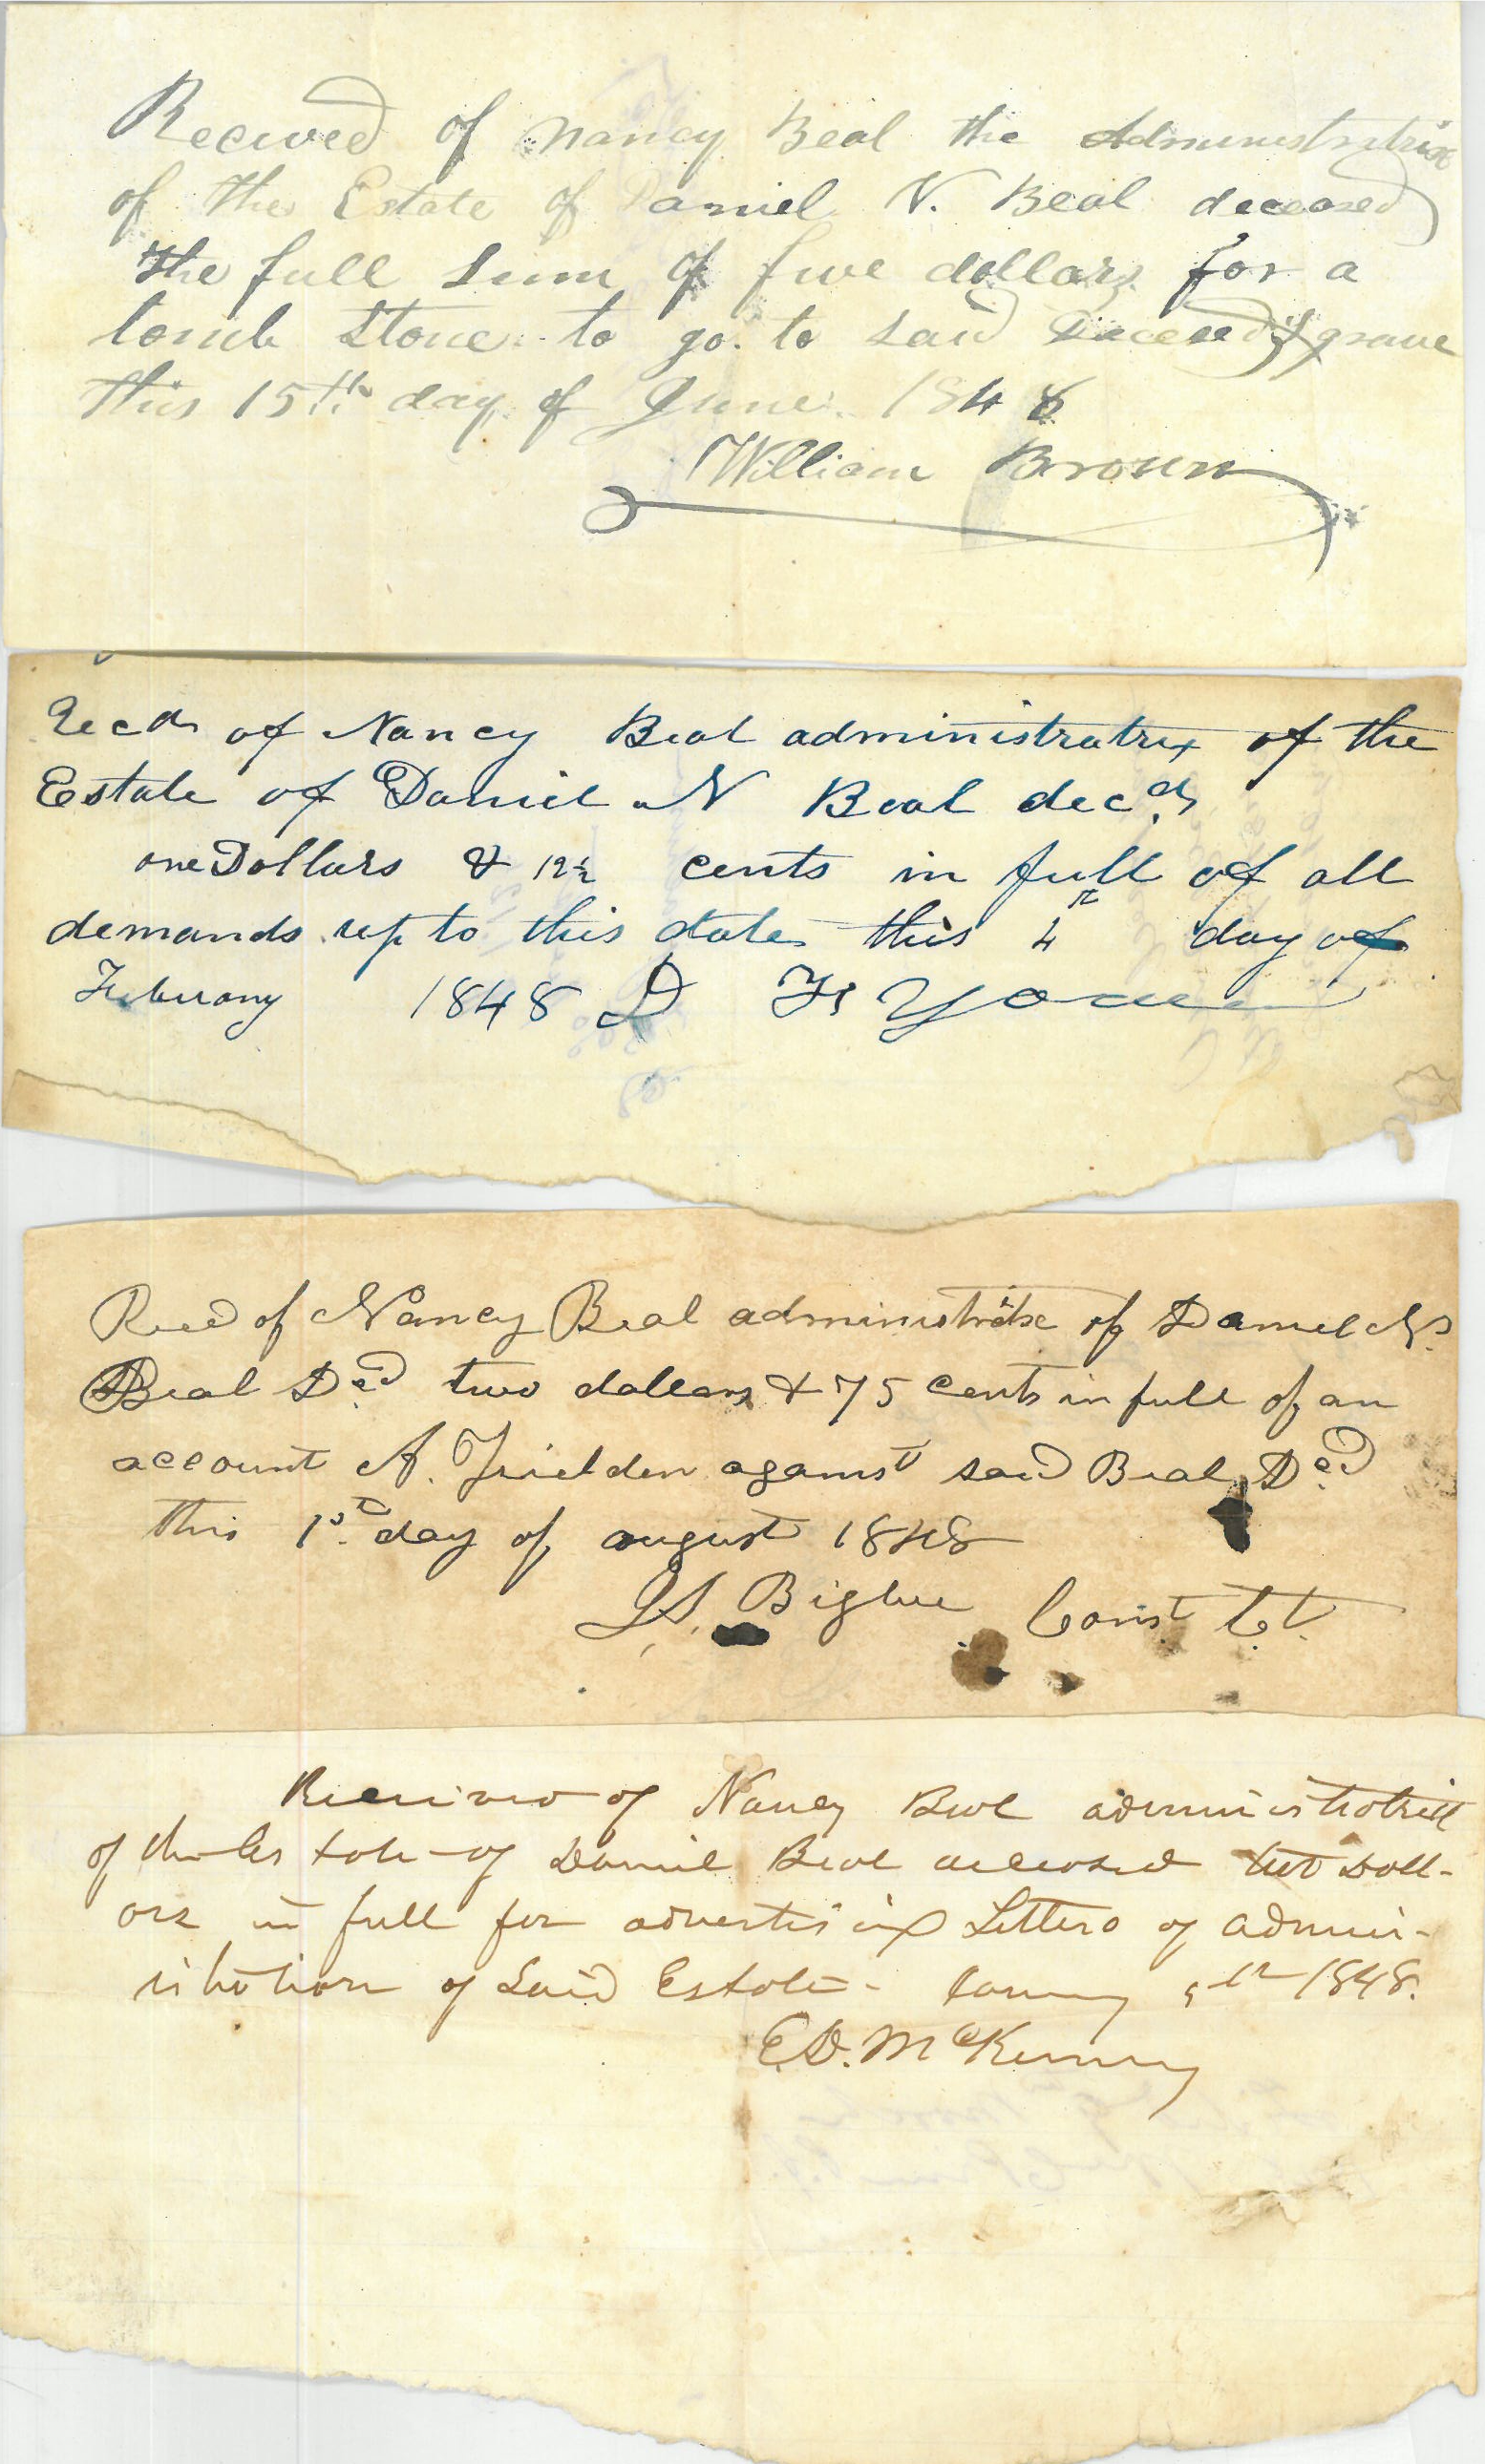 Received of Nancy Beal the Administratrix
of the Estate of Daniel N. Beal deceased
the full sum of five dollars for a
tomb stone to go to said deceed's grave
this 15th day of June 1848
William Brown
Recd of Nancy Beal administratrix of the
Estate of Daniel N Beal decd
one Dollars & 12½ cents in full of all
demands up to this date this 4th day of
February 1848 D F
Recd of Nancy Beal administratrix of Daniel N.
Beal Decd two dollars & 75 cents in full of an
account A. Frielden against said Beal Decd
this 1st day of august 1848
J S. Bigbee Const
Received of Nancy Beal administratrix
of the Estate of Daniel Beal deceased Doll-
ars in full for advertising Letters of admin-
istration of Said Estate - 5th 1848.
E. D. McKenney